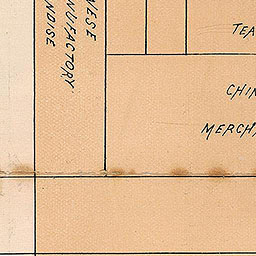 NESE
NUFACTORY
NDISE
TEA
CHIN
MERCH